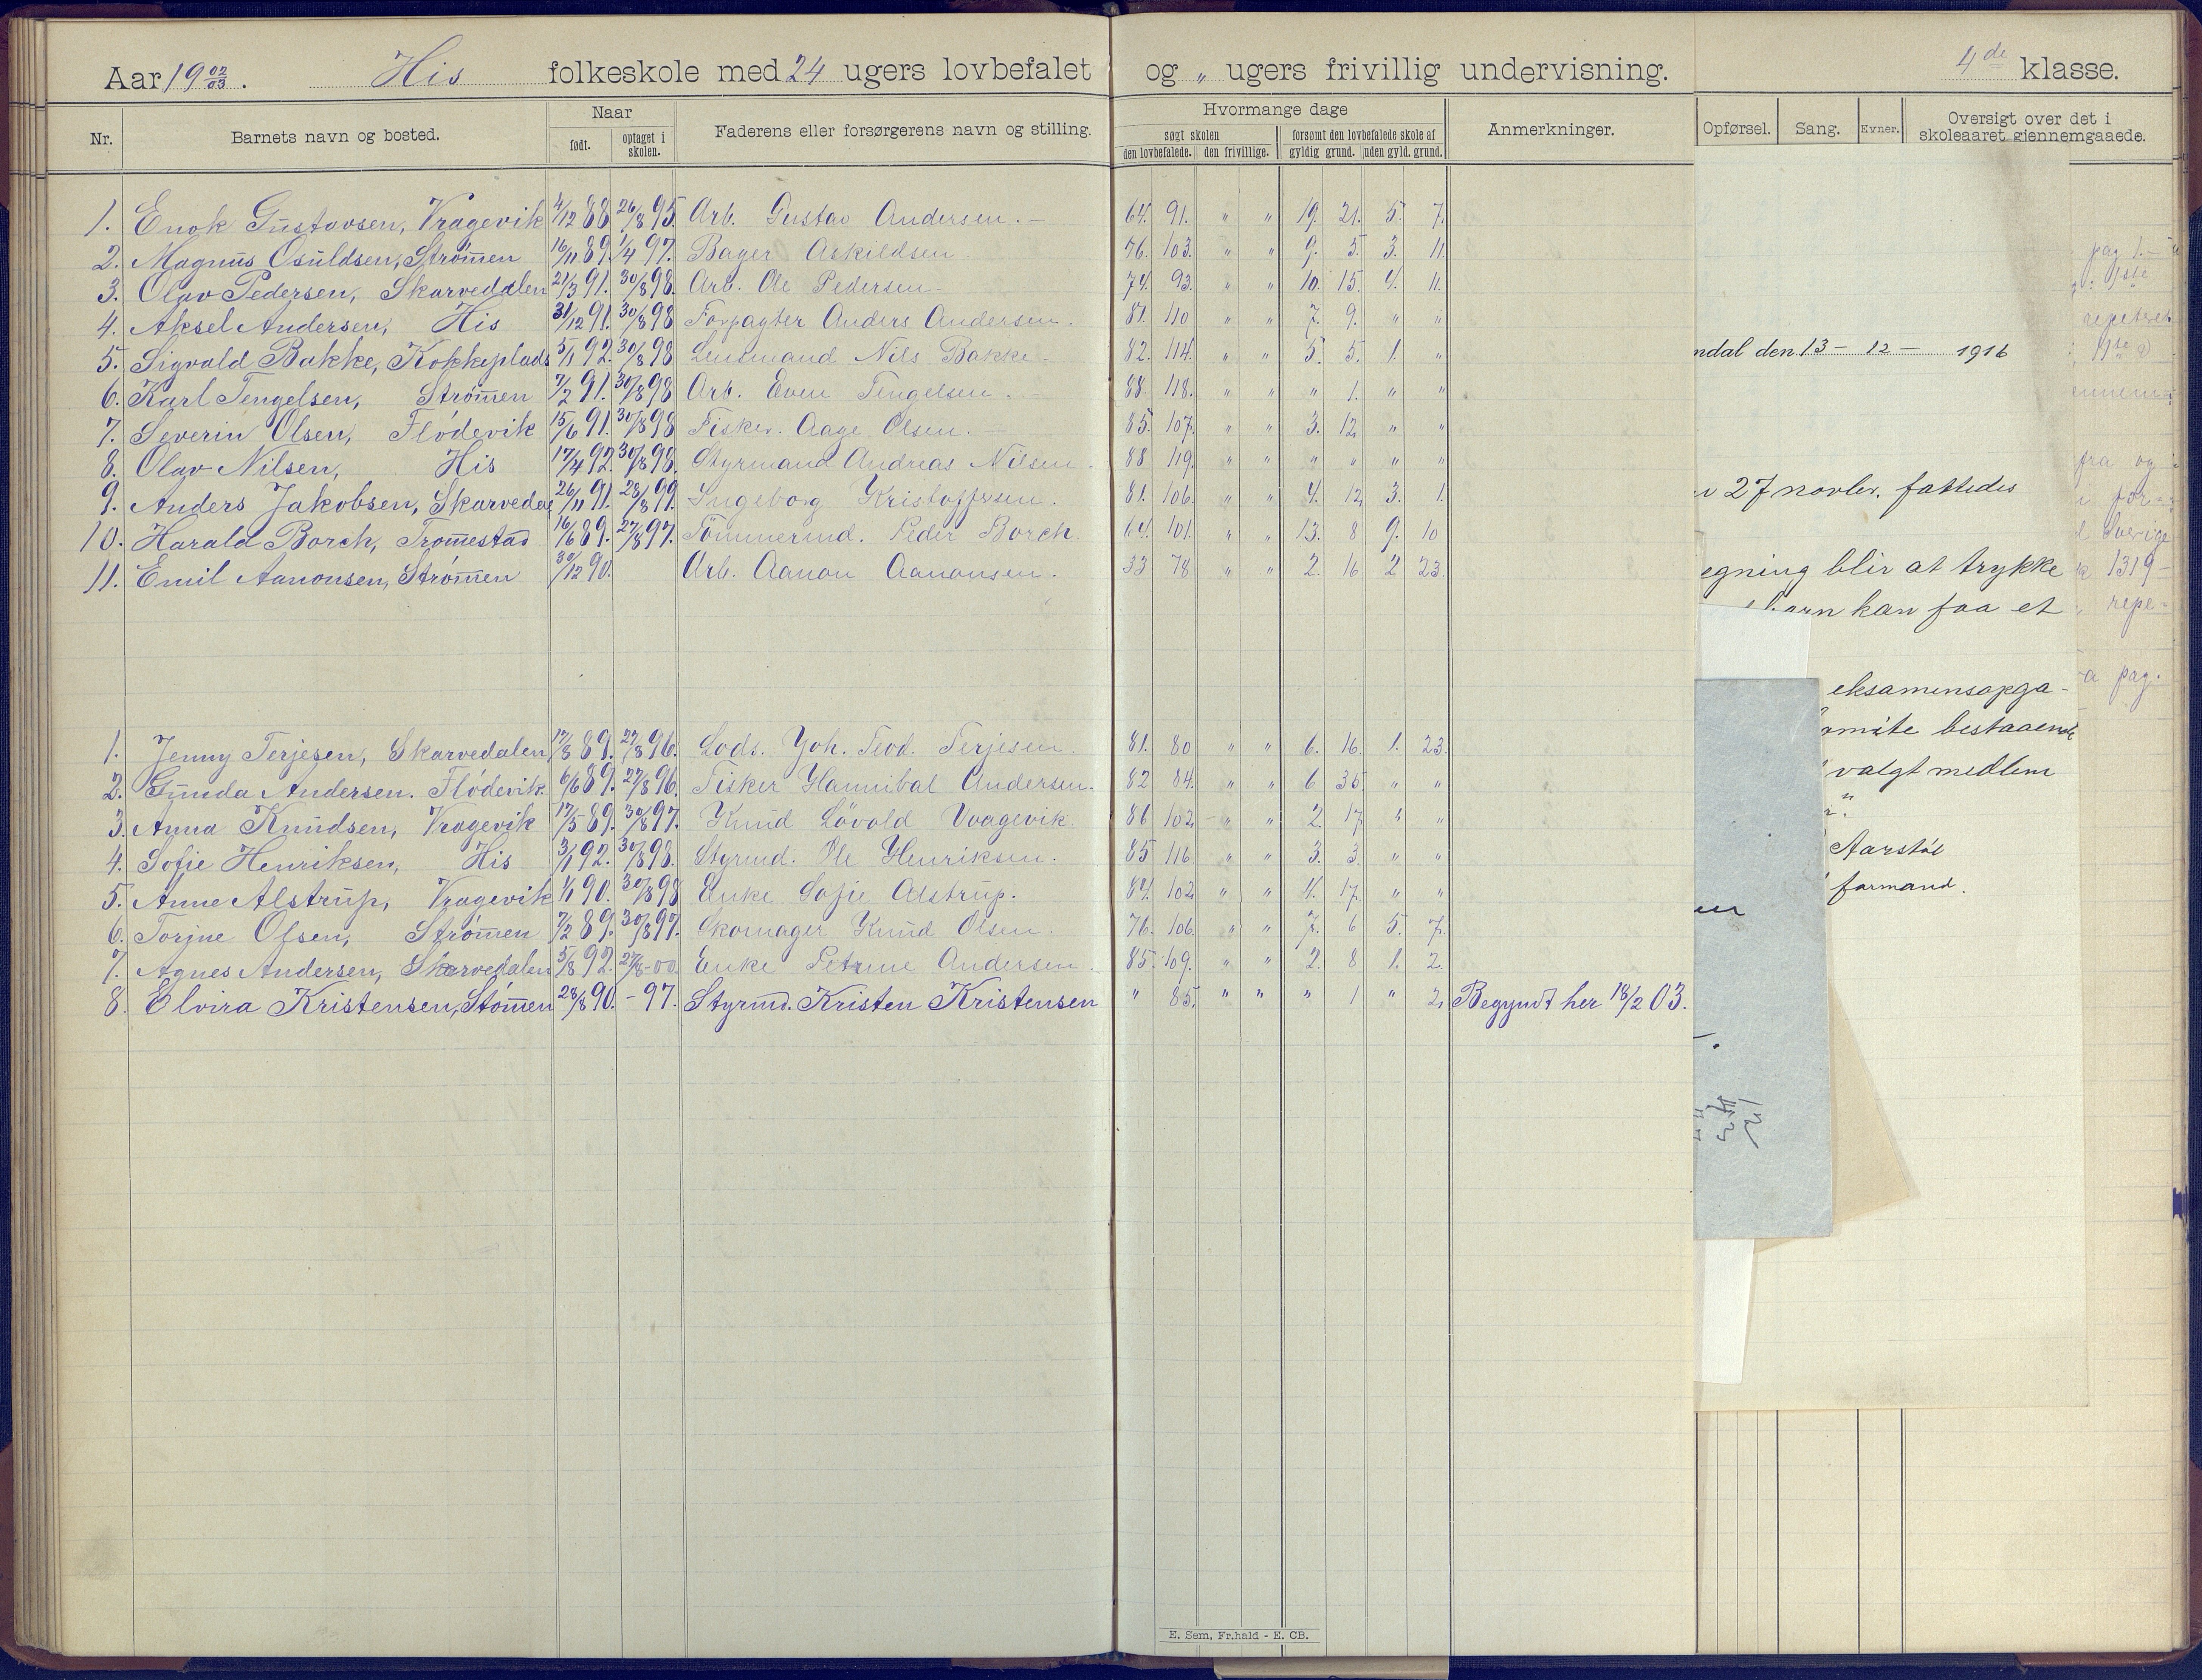 Aar 19 02/03. His folkeskole med 24 ugers lovbefalet og „ ugers frivillig undervisning. 4de klasse.
Nr. Barnets navn og bosted. Naar født. optaget i skolen. Faderens eller forsørgerens navn og stilling. Hvormange dage søgt skolen den lovbefalede. den frivillige. forsømt den lovbefalede skole af gyldig grund. uden gyld. grund. Anmerkninger. Opførsel. Sang. Evner. Oversigt over det i skoleaaret gjennemgaaede.
1. Enok Gustavsen, Vragevik 4/12 88 26/8 95. Arb. Gustav Andersen. — 64. 91. „ „ 19. 21. 5. 7.
2. Magnus Osuldsen, Strømen 16/11 89. 1/4 97. Bager Askildsen 76. 103. „ „ 9. 5. 3. 11.
3. Olav Pedersen, Skarvedalen 21/3 91. 30/8 98. Arb. Ole Pedersen 74. 93. „ „ 10. 15. 4. 11.
4. Aksel Andersen, His 31/12 91. 30/8 98 Forpagter Anders Andersen. 81. 110 „ „ 7. 9. „ „
5. Sigvald Bakke, Kokkeplads 5/1 92. 30/8 98 Lensmand Nils Bakke 82. 114. „ „ 5. 5. 1. „
6. Karl Tengelsen, Strømen 7/2 91. 30/8 98 Arb. Even Tengelsen. 88. 118. „ „ „ 1. „ „
7. Severin Olsen, Flødevik 15/6 91. 30/8 98 Fisker. Aage Olsen. 85. 107. „ „ 3. 12. „ „
8. Olav Nilsen, His 17/4 92. 30/8 98. Styrmand Andreas Nilsen. 88 119. „ „ „ „ „ „
9. Anders Jakobsen, Skarvedal 26/11 91. 28/8 99. Ingeborg Kristoffersen. 81. 106. „ „ 4. 12. 3. 1.
10. Harald Borch, Tromestad 16/6 89. 27/8 97. Tømmermd. Peder Borch 64. 101. „ „ 13. 8 9. 10
11. Emil Aanonsen, Strømen 30/12 90. Arb. Aanon Aanonsen. 33 78 „ „ 2. 16 2 23.
1. Jenny Terjesen, Skarvedalen 17/8 89. 27/8 96. Lods. Joh. Teod. Terjesen. 81. 80 „ „ 6. 16. 1. 23.
2. Gunda Andersen. Flødevik. 6/6 89. 27/8 96. Fisker Hannibal Andersen. 82 84. „ „ 6 35. „ „
3. Anna Knudsen, Vragevik 17/5 89. 30/8 97. Knud Løvold Vragevik. 86 102 „ „ 2. 17. „ „
4. Sofie Henriksen, His 3/1 92. 30/8 98. Styrmd. Ole Henriksen. 85 116 „ „ 3. 3. „ „
5. Anne Alstrup, Vragevik 1/1 90. 30/8 98 Enke Sofie Alstrup. 84. 102 „ „ 4. 17. „ „
6. Torjne Olsen, Strømen 7/2 89. 30/8 97. Skomager Knud Olsen. 76. 106. „ „ 7. 6 5. 7.
7. Agnes Andersen, Skarvedalen 5/8 92. 27/8 - 00. Enke Petrine Andersen. 85. 109. „ „ 2. 8 1. 2.
8. Elvira Kristensen, Stömen 28/8 90. - 97. Styrmd. Kristen Kristensen „ 85. „ „ „ 1 „ 2. Begyndt her 18/2 03.
pag 1. —
1ste
repetert
ndal den 13 - 12 - 1916
fra og
27 novbr. fattedes
Sverige
egning blir at trykke
1319 -
barn kan faa et
repe-
pag.
eksamensopga-
omite bestaaende
valgt medlem
Aarstøl
formand.
E. Sem, Fr.hald - E. CB.